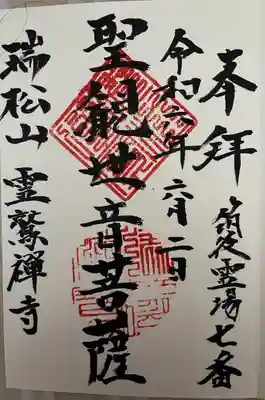 奉拝
筑後霊場七番
令和六年六月二日
聖観世音菩薩
瑞松山 霊鷲禪寺